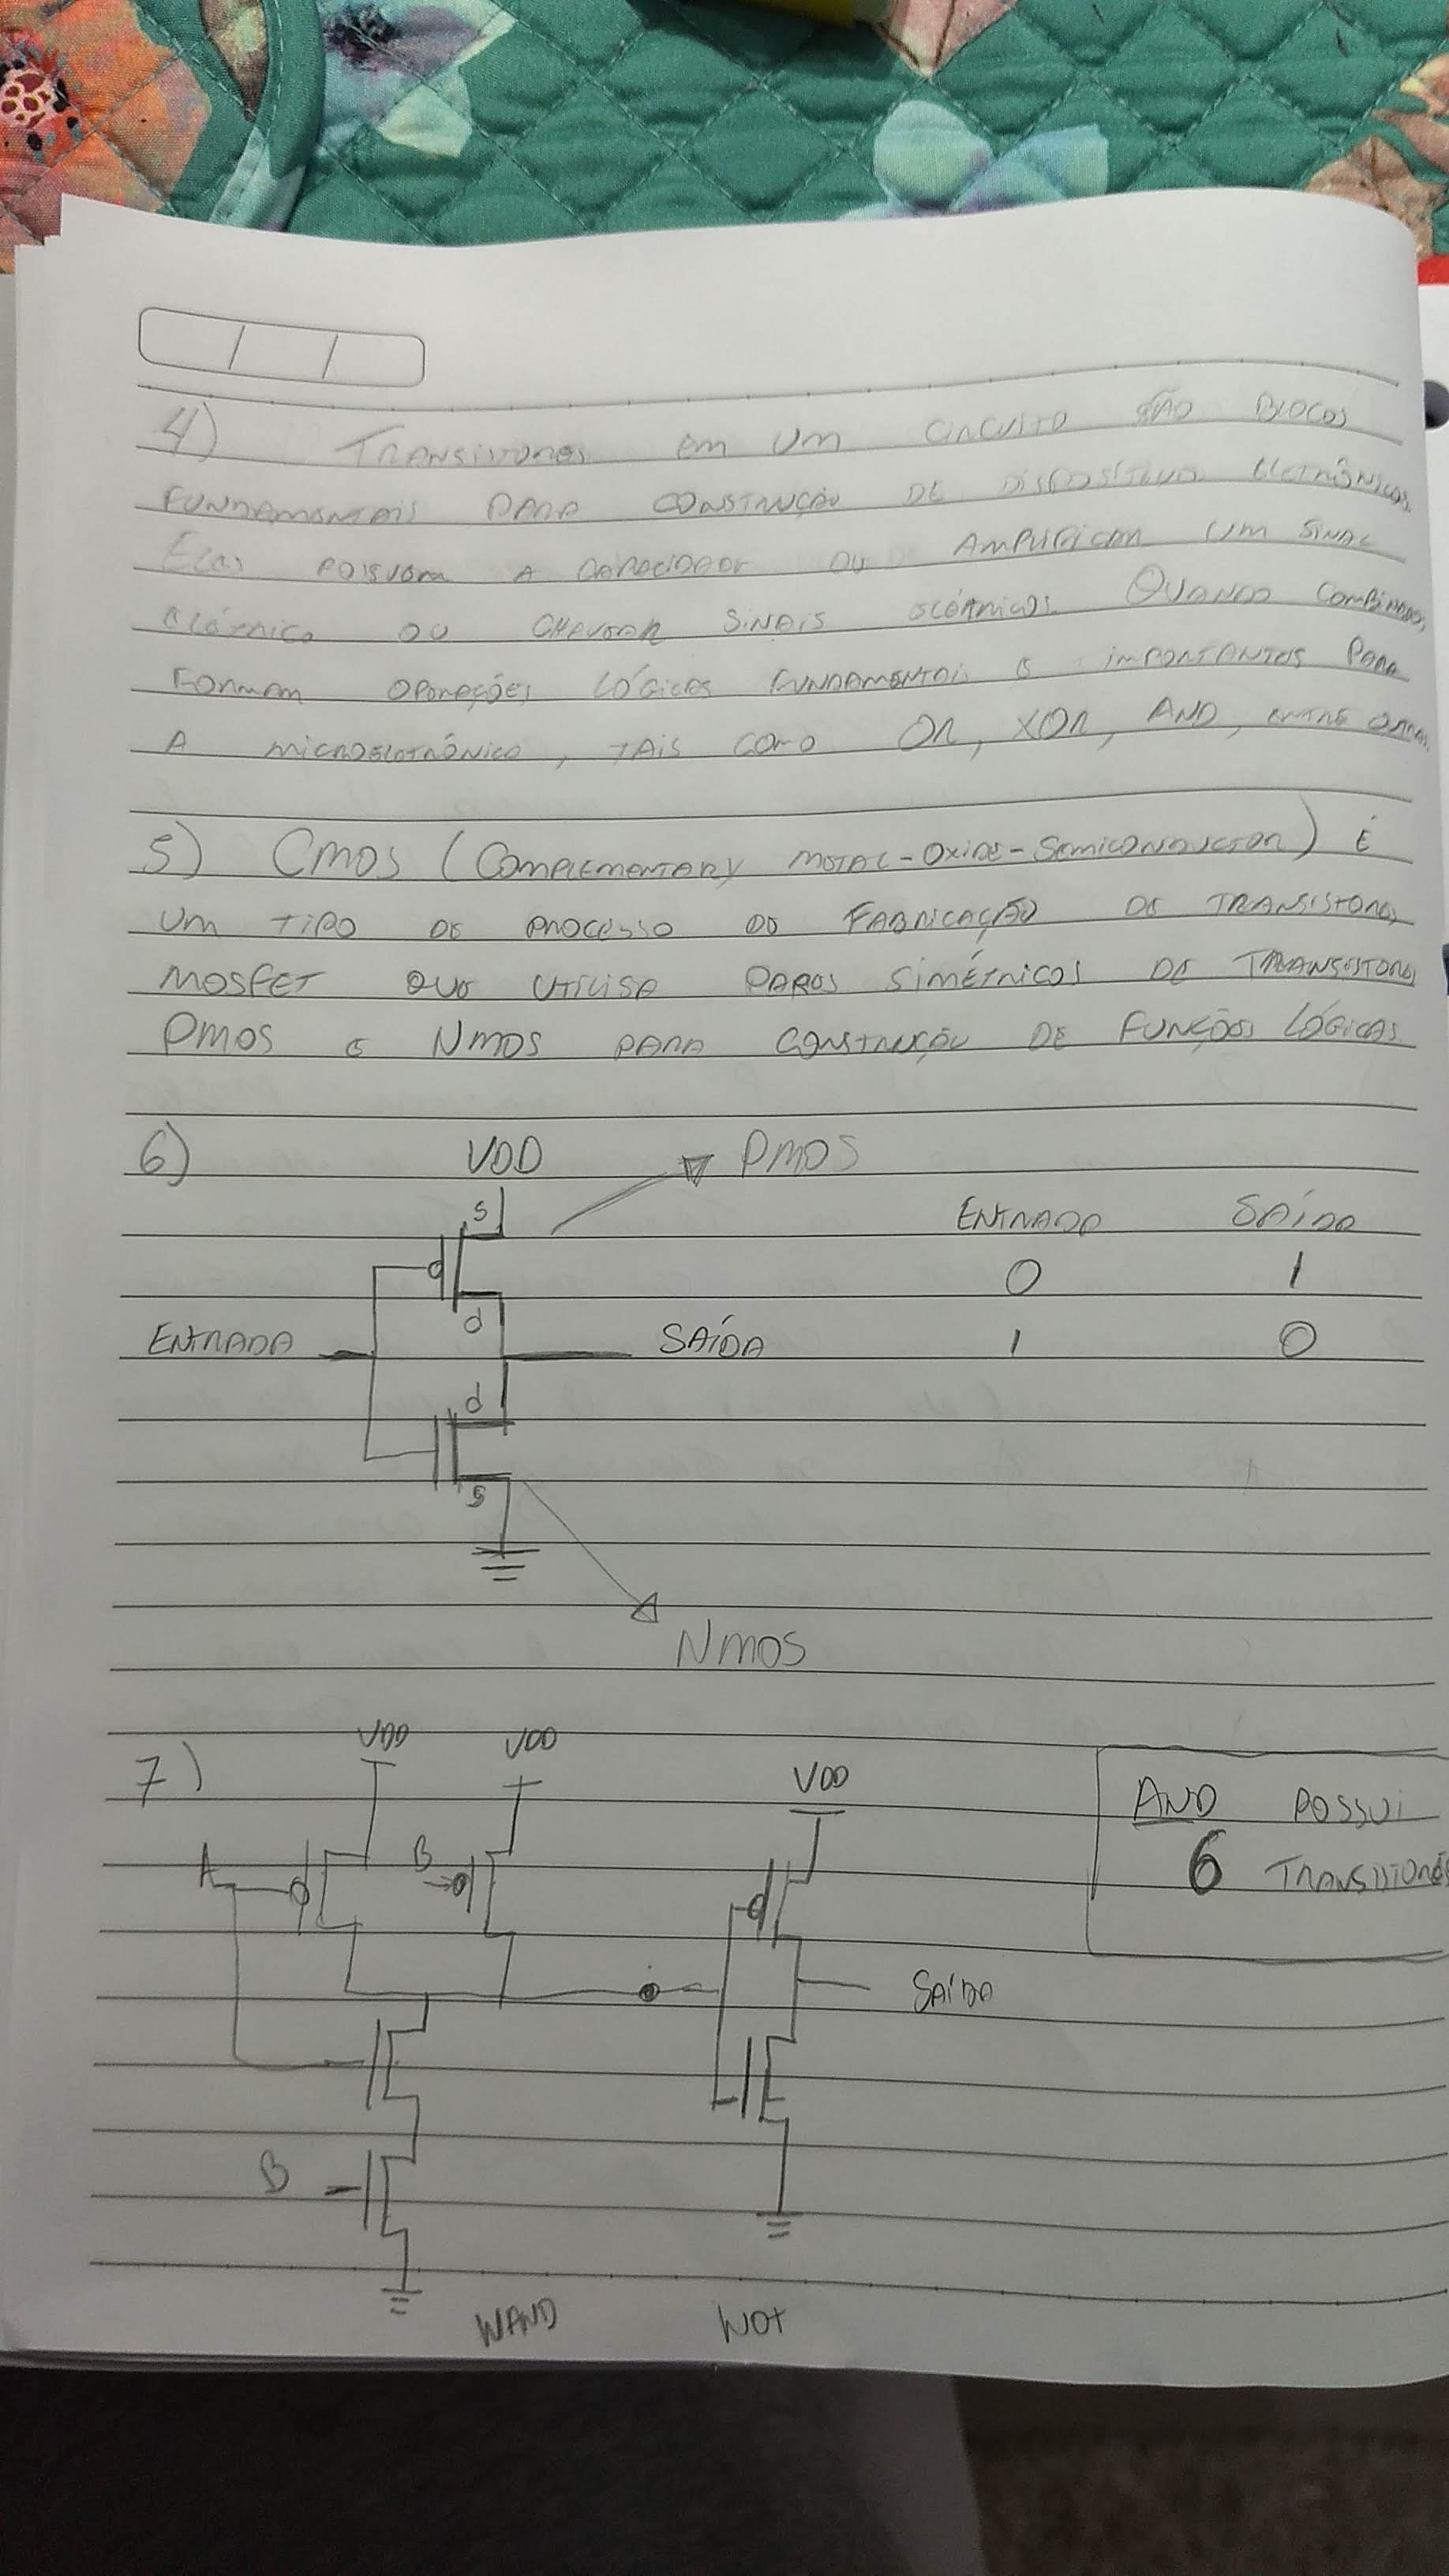 4) TRANSISTORES EM UM CIRCUITO SÃO BLOCOS
FUNDAMENTAIS PARA CONSTRUÇÃO DE DISPOSITIVOS ELETRÔNICOS.
ELES POSSUEM A CAPACIDADE OU AMPLIFICAR UM SINAL
ELÉTRICO OU CHAVEAR SINAIS ELÉTRICOS. QUANDO COMBINADOS,
FORMAM OPERAÇÕES LÓGICAS FUNDAMENTAIS E IMPORTANTES PARA
A MICROELETRÔNICA, TAIS COMO OR, XOR, AND, ENTRE OUTROS.
5) CMOS (COMPLEMENTARY METAL-OXIDE-SEMICONDUCTOR) É
UM TIPO DE PROCESSO DE FABRICAÇÃO DE TRANSISTORES
MOSFET QUE UTILISA PARES SIMÉTRICOS DE TRANSISTORES
PMOS E NMOS PARA CONSTRUÇÃO DE FUNÇÕES LÓGICAS
6) VDD PMOS
S
ENTRADA SAÍDA
0 1
d
ENTRADA SAÍDA
1 0
d
S
NMOS
7) VDD VDD VDD
AND POSSUI
6 TRANSISTORES
A B
SAÍDA
B
NAND NOT